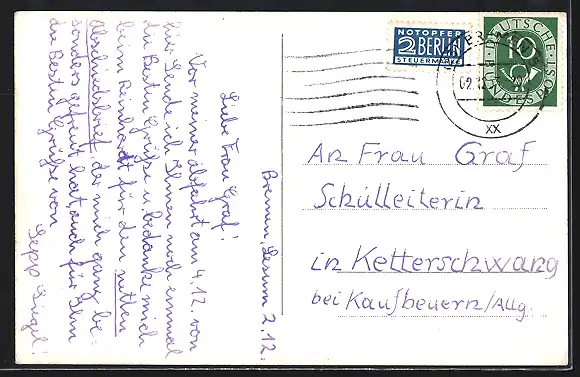 Bremen, Lesum 2.12.
Liebe Frau Graf!
Vor meiner Abfahrt am 4.12. von
hier sende ich Ihnen noch einmal
die Besten Grüße u bedanke mich
beim Reinhardt für den netten
Abschiedsbrief, der mich ganz be-
sonders gefreut hat, auch für Ihre
die Besten Grüße von
Sepp Siegel!
NOTOPFER
2 BERLIN
STEUERMARKE
DEUTSCHE
BUNDESPOST
10
02.12
XX
An Frau Graf
Schulleiterin
in Ketterschwang
bei Kaufbeuern/Allg.